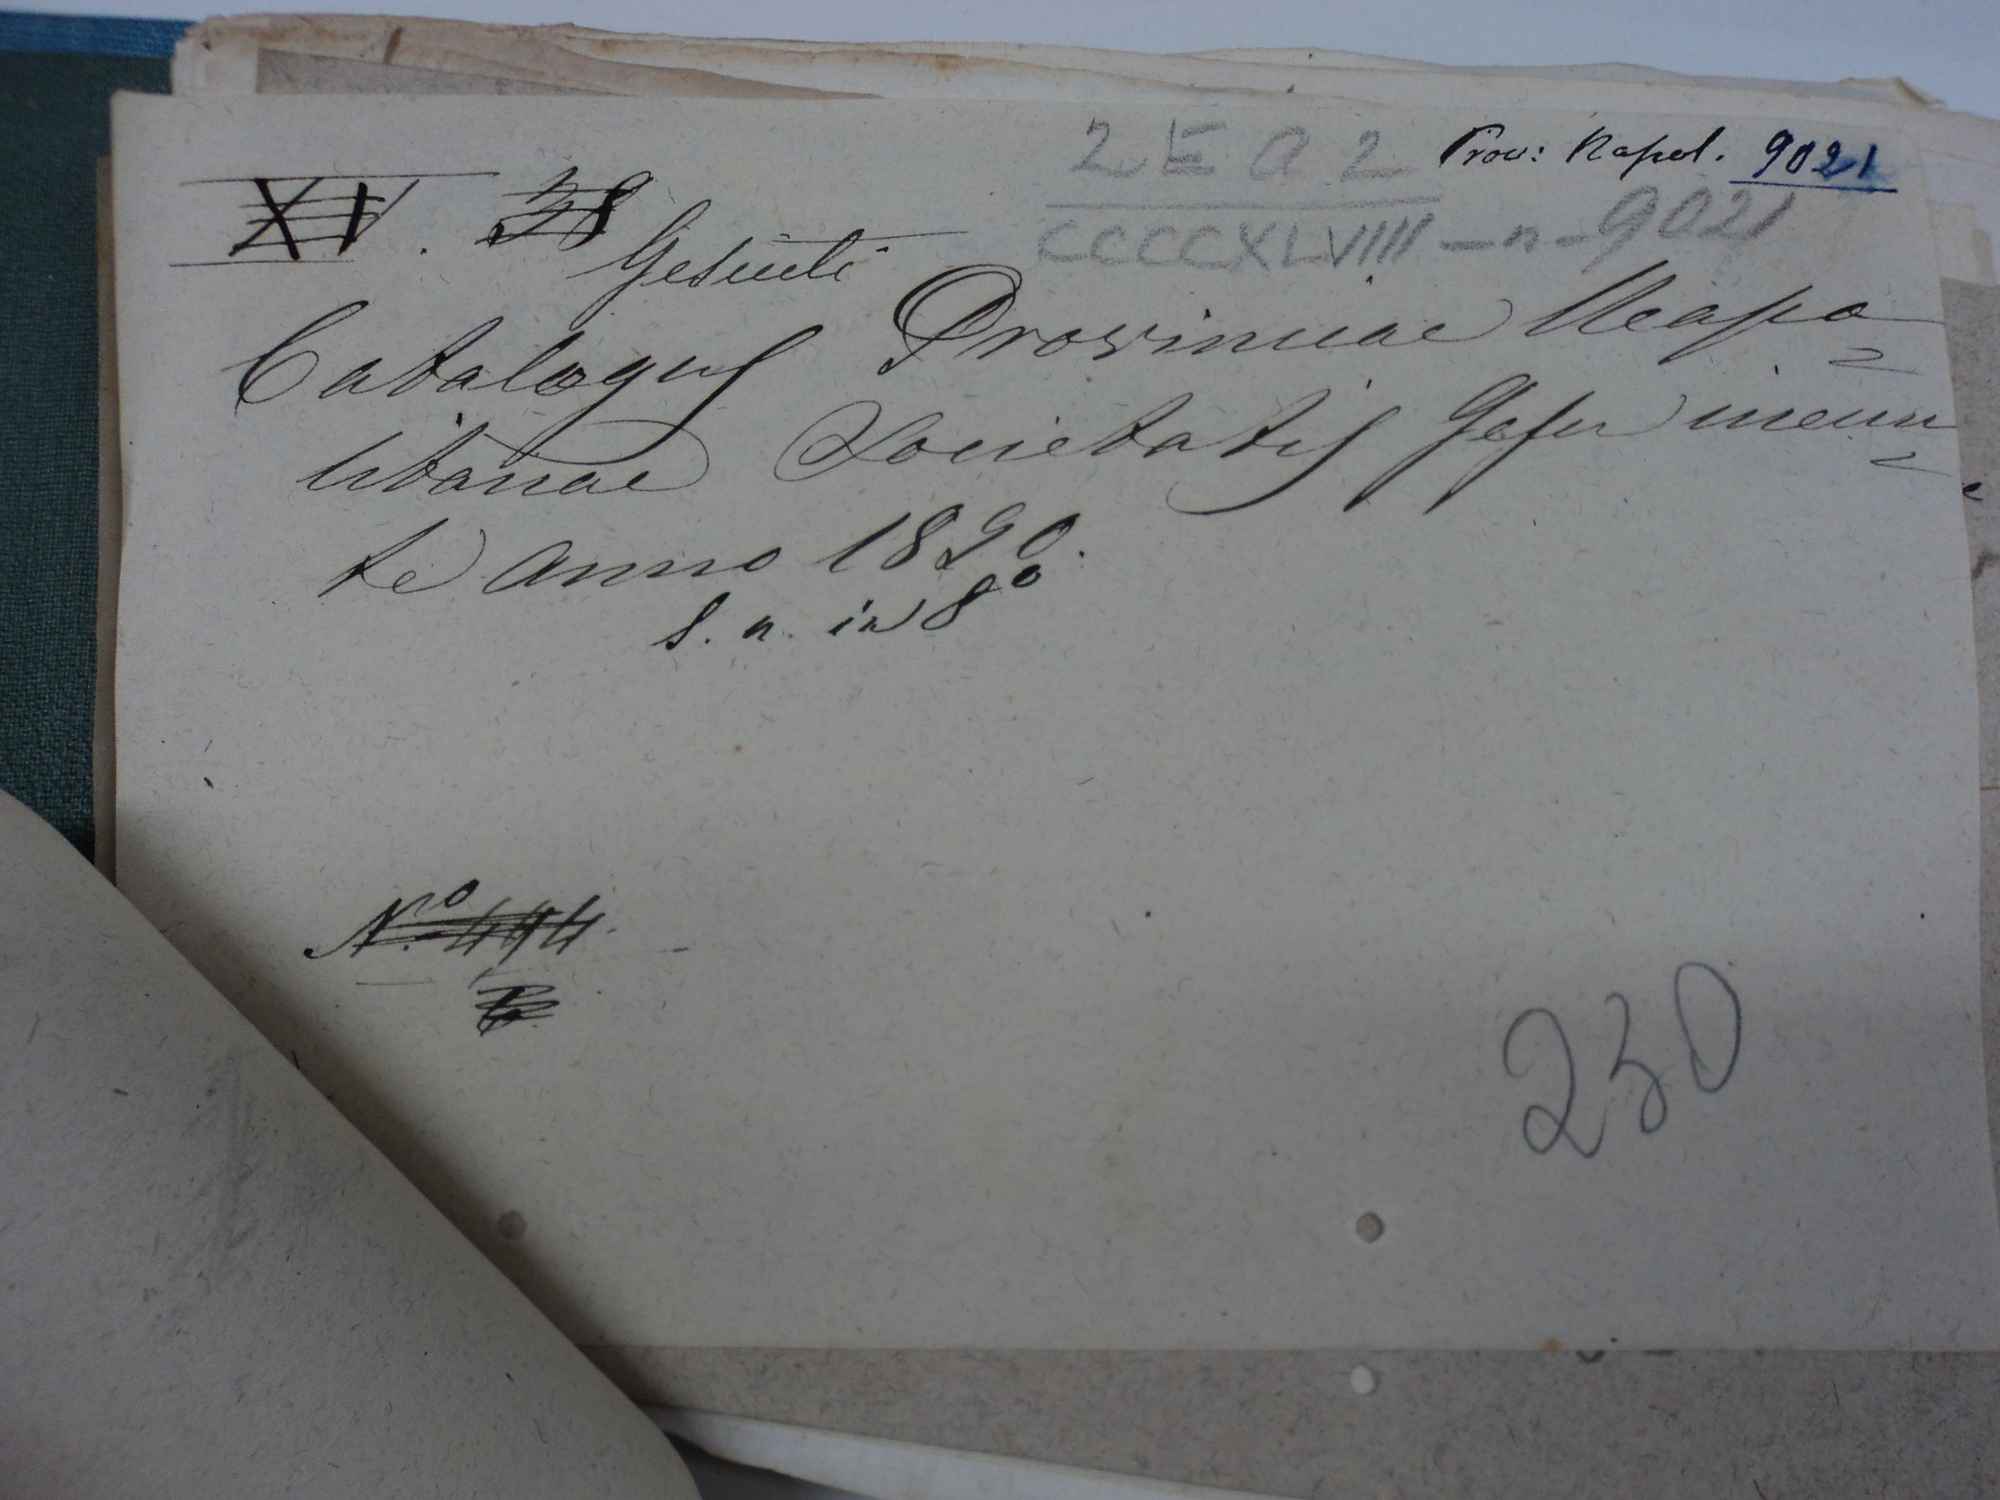 2 E a 2 Prov: Napol. 9021
XV. 38 CCCCXLVIIII - n - 9021
Gesuiti
Catalogus Provinciae Neapo=
litanae Societatis Jesu ineun=
te anno 1890.
S. n. in 8º
Nº 494.
230